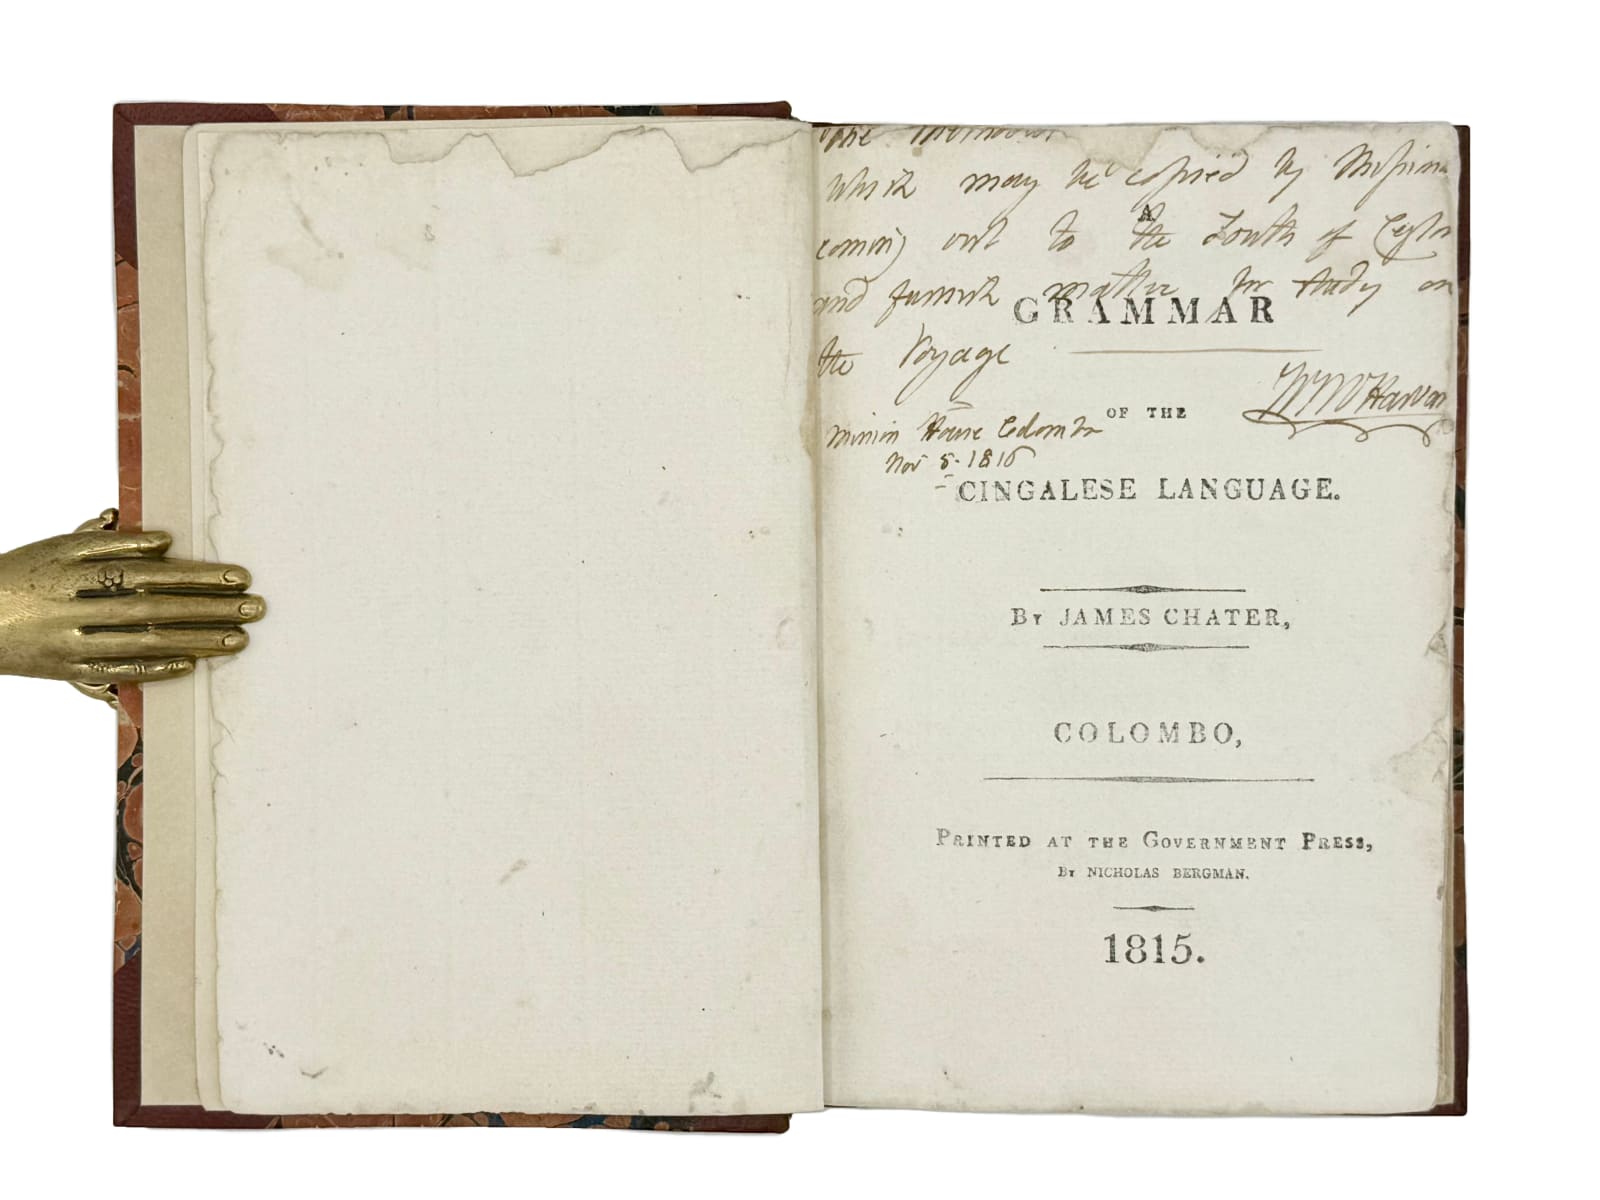 which may be copied by
coming out to the South of
and furnish matter for study on
the Voyage
Mission House Colombo
Nov 5. 1816
A
GRAMMAR
OF THE
CINGALESE LANGUAGE.
By JAMES CHATER,
COLOMBO,
PRINTED AT THE GOVERNMENT PRESS,
By NICHOLAS BERGMAN.
1815.